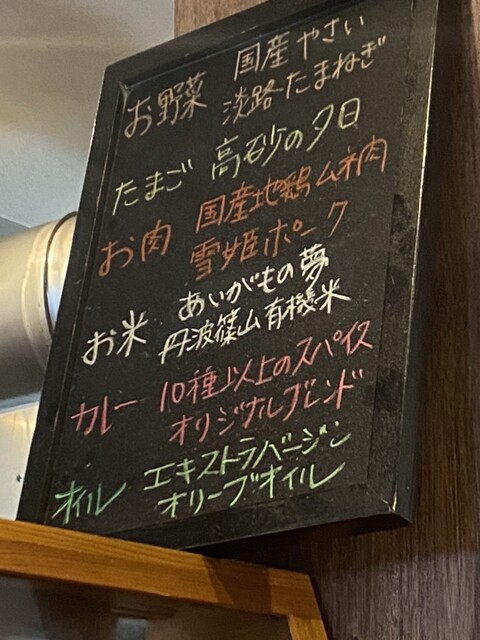 お野菜 国産やさい
淡路たまねぎ
たまご 高砂の夕日
お肉 国産地鶏ムネ肉
雪姫ポーク
お米 あいがもの夢
丹波篠山有機米
カレー 10種以上のスパイス
オリジナルブレンド
オイル エキストラバージン
オリーブオイル